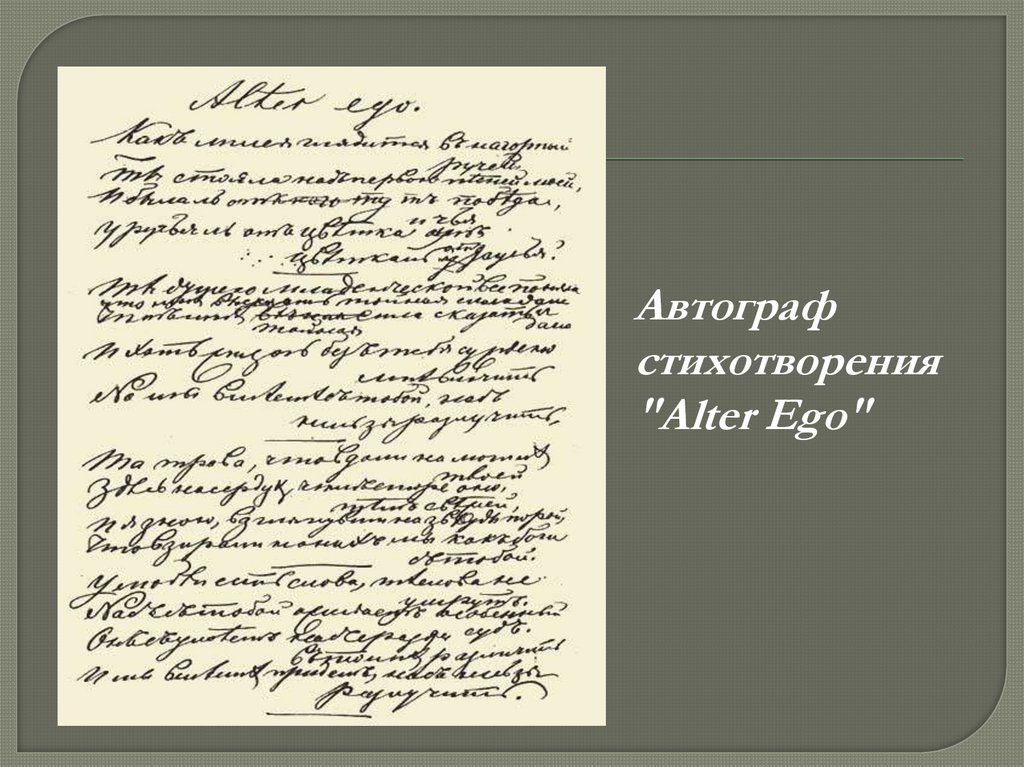 Alter ego.
Какъ лилея глядится въ нагорный
ручей,
Ты стояла надъ первою пѣсней моей,
И была ль тутъ побѣда,
и чья
У ручья ль отъ цвѣтка
цвѣтка ль отъ ручья?
Ты душою младенческой все поняла
Что мнѣ высказать тайная сила дала
сила сказать
тайная дала
И хоть жизнь безъ тебя суждено
мнѣ влачить
Но мы вмѣстѣ съ тобой, насъ
нельзя разлучить,
Та трава, что вдали на могилѣ
твоей
Здѣсь на сердцѣ, чѣмъ старе оно,
тѣмъ свѣжей,
И я знаю, взглянувши на звѣзды порой,
Что взирали на нихъ мы какъ боги
съ тобой.
У любви есть слова, тѣ слова не
умрутъ.
Насъ съ тобой ожидаетъ особенный
судъ.
Онъ съумѣетъ насъ
въ толпѣ различить
И мы вмѣстѣ придемъ, насъ нельзя
разлучить.
Автограф
стихотворения
"Alter Ego"